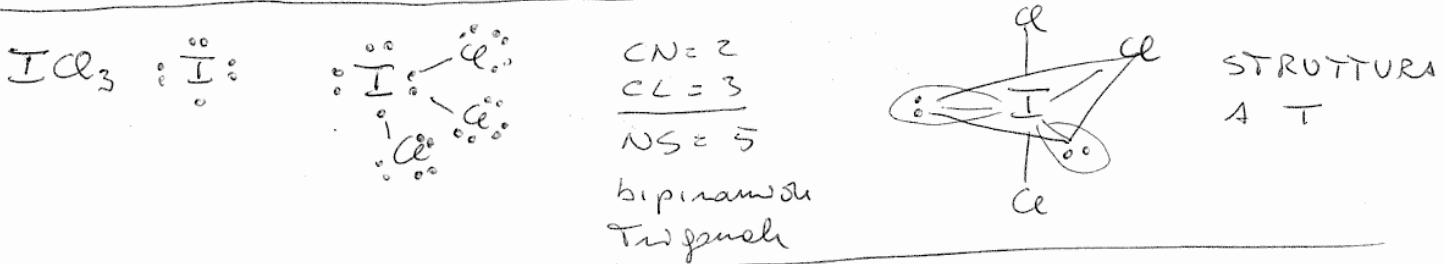 ICl₃ I I Cl Cl Cl
CN = 2
CL = 3
NS = 5
bipiramide
Trigonale
Cl
Cl
I
Cl
STRUTTURA
A T